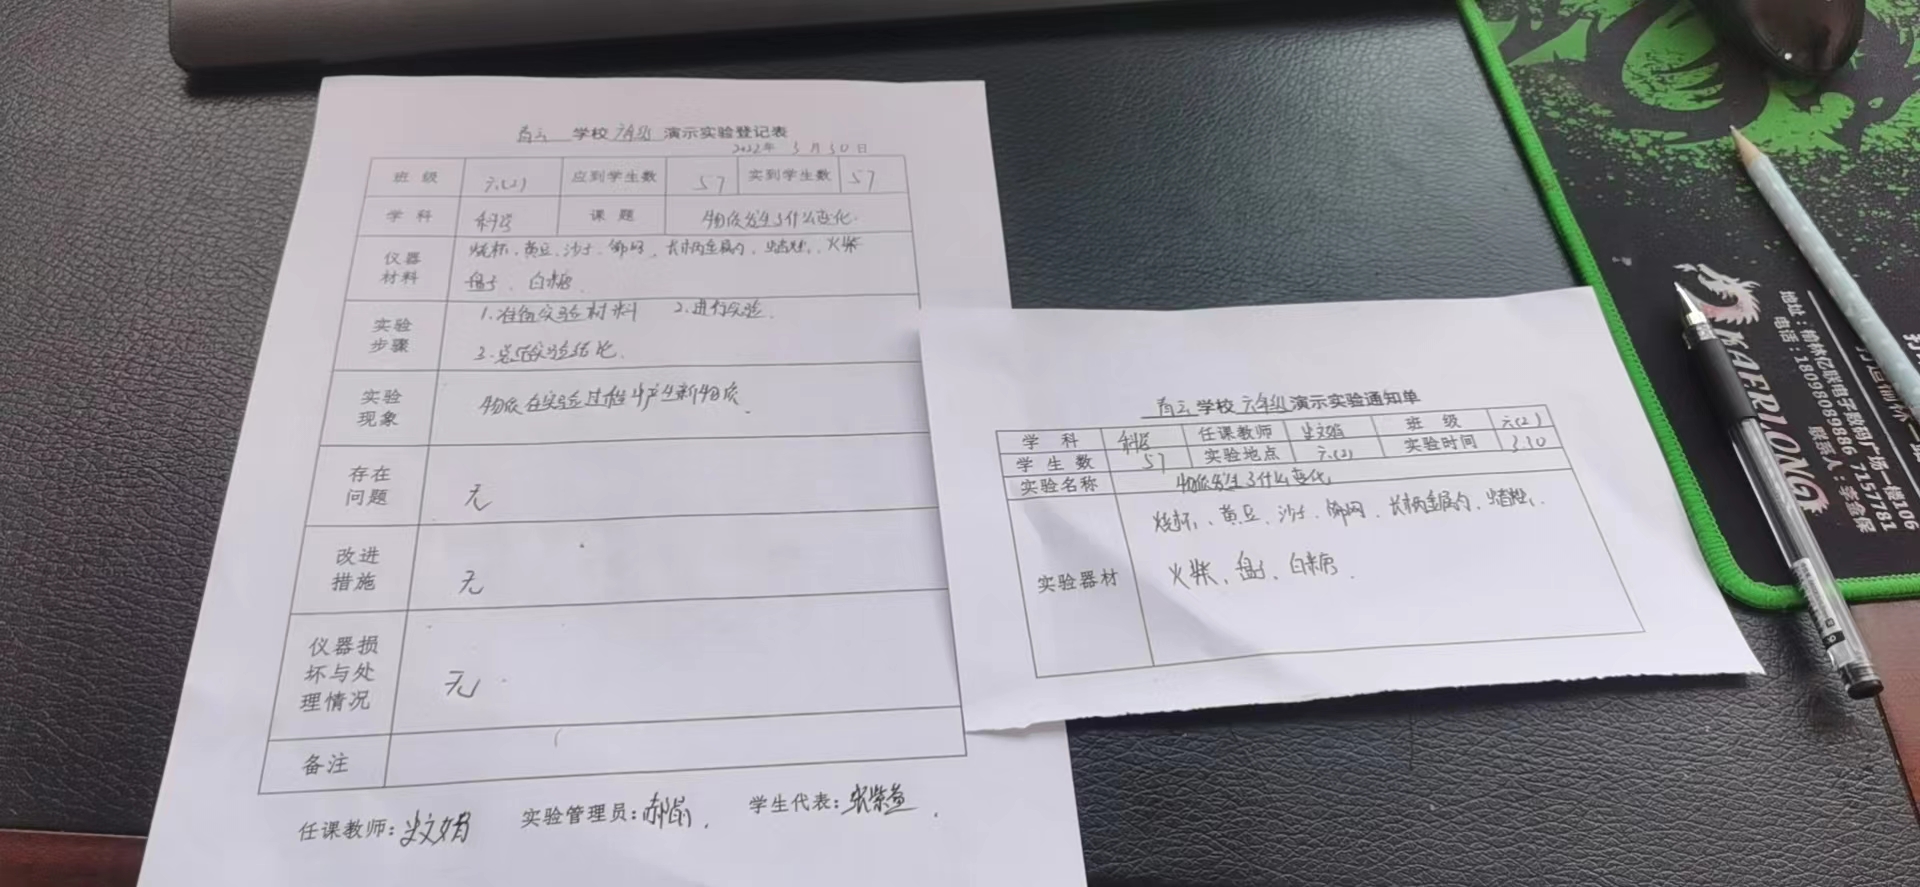 青云 学校 六年级 演示实验登记表
2022年 3月30日
班级 六(2) 应到学生数 57 实到学生数 57
学科 科学 课题 物质发生了什么变化.
仪器材料 烧杯、黄豆、沙子、筛网、长柄金属勺、蜡烛、火柴
盘子、白糖.
实验步骤 1.准备实验材料 2.进行实验.
3.总结实验结论.
实验现象 物质在实验过程中产生新物质.
存在问题 无
改进措施 无
仪器损坏与处理情况 无
备注
任课教师: 文娟 实验管理员: 学生代表: 张紫
青云 学校 六年级 演示实验通知单
学科 科学 任课教师 文娟 班级 六(2)
学生数 57 实验地点 六(2) 实验时间 3.30
实验名称 物质发生了什么变化
实验器材 烧杯、黄豆、沙子、筛网、长柄金属勺、蜡烛、
火柴、盘子、白糖.
KAERLONG
地址:榆林亿联电子数码广场一楼106
电话:18098089886 7157781
联系人:李金保